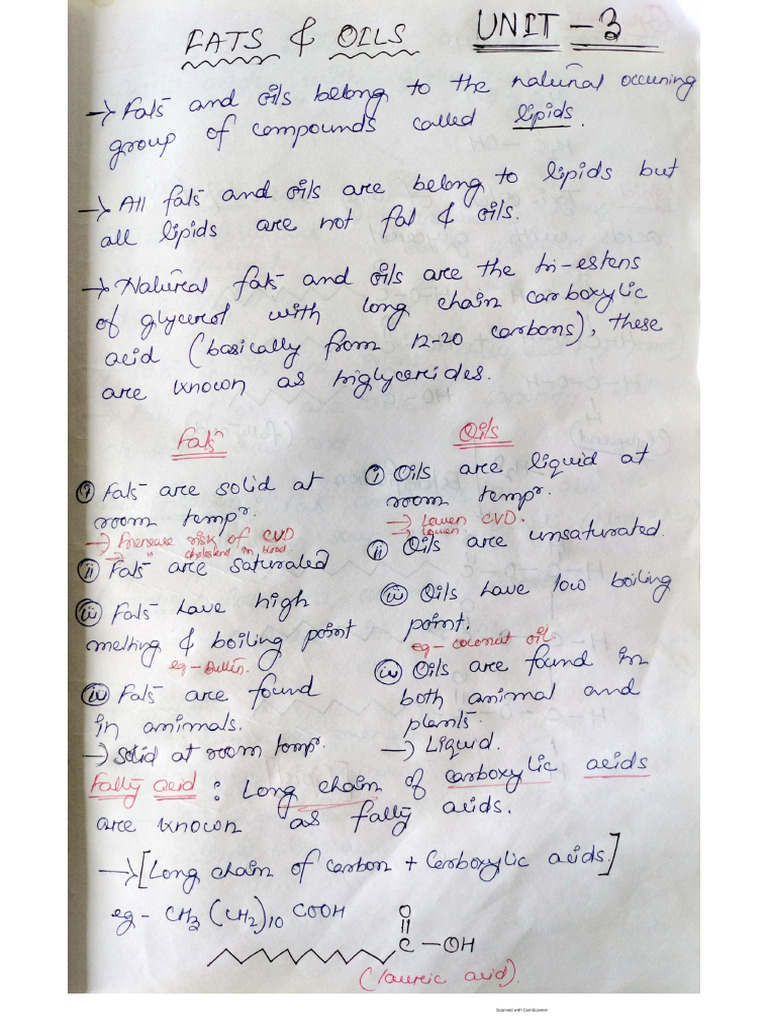 FATS & OILS UNIT - 3
→ Fats and oils belong to the natural occuring
group of compounds called lipids.
→ All fats and oils are belong to lipids but
all lipids are not fat & oils.
→ Natural fats and oils are the tri-esters
of glycerol with long chain carboxylic
acid (basically from 12-20 carbons), these
are known as triglycerides.
Fats
(i) Fats are solid at
room tempr.
→ Increase risk of CVD
→ " cholesterol in blood.
(ii) Fats are saturated
(iii) Fats have high
melting & boiling point
eg - Butter.
(iv) Fats are found
in animals.
→ Solid at room tempr.
Oils
(i) Oils are liquid at
room tempr.
→ Lower CVD.
→ Lower
(ii) Oils are unsaturated.
(iii) Oils have low boiling
point.
eg - coconut oil
(iv) Oils are found in
both animal and
plants.
→ Liquid.
Fatty acid : Long chain of carboxylic acids
are known as fatty acids.
→ [Long chain of carbon + Carboxylic acids.]
eg - CH3 (CH2)10 COOH
O
C - OH
(lauric acid).
Scanned with CamScanner